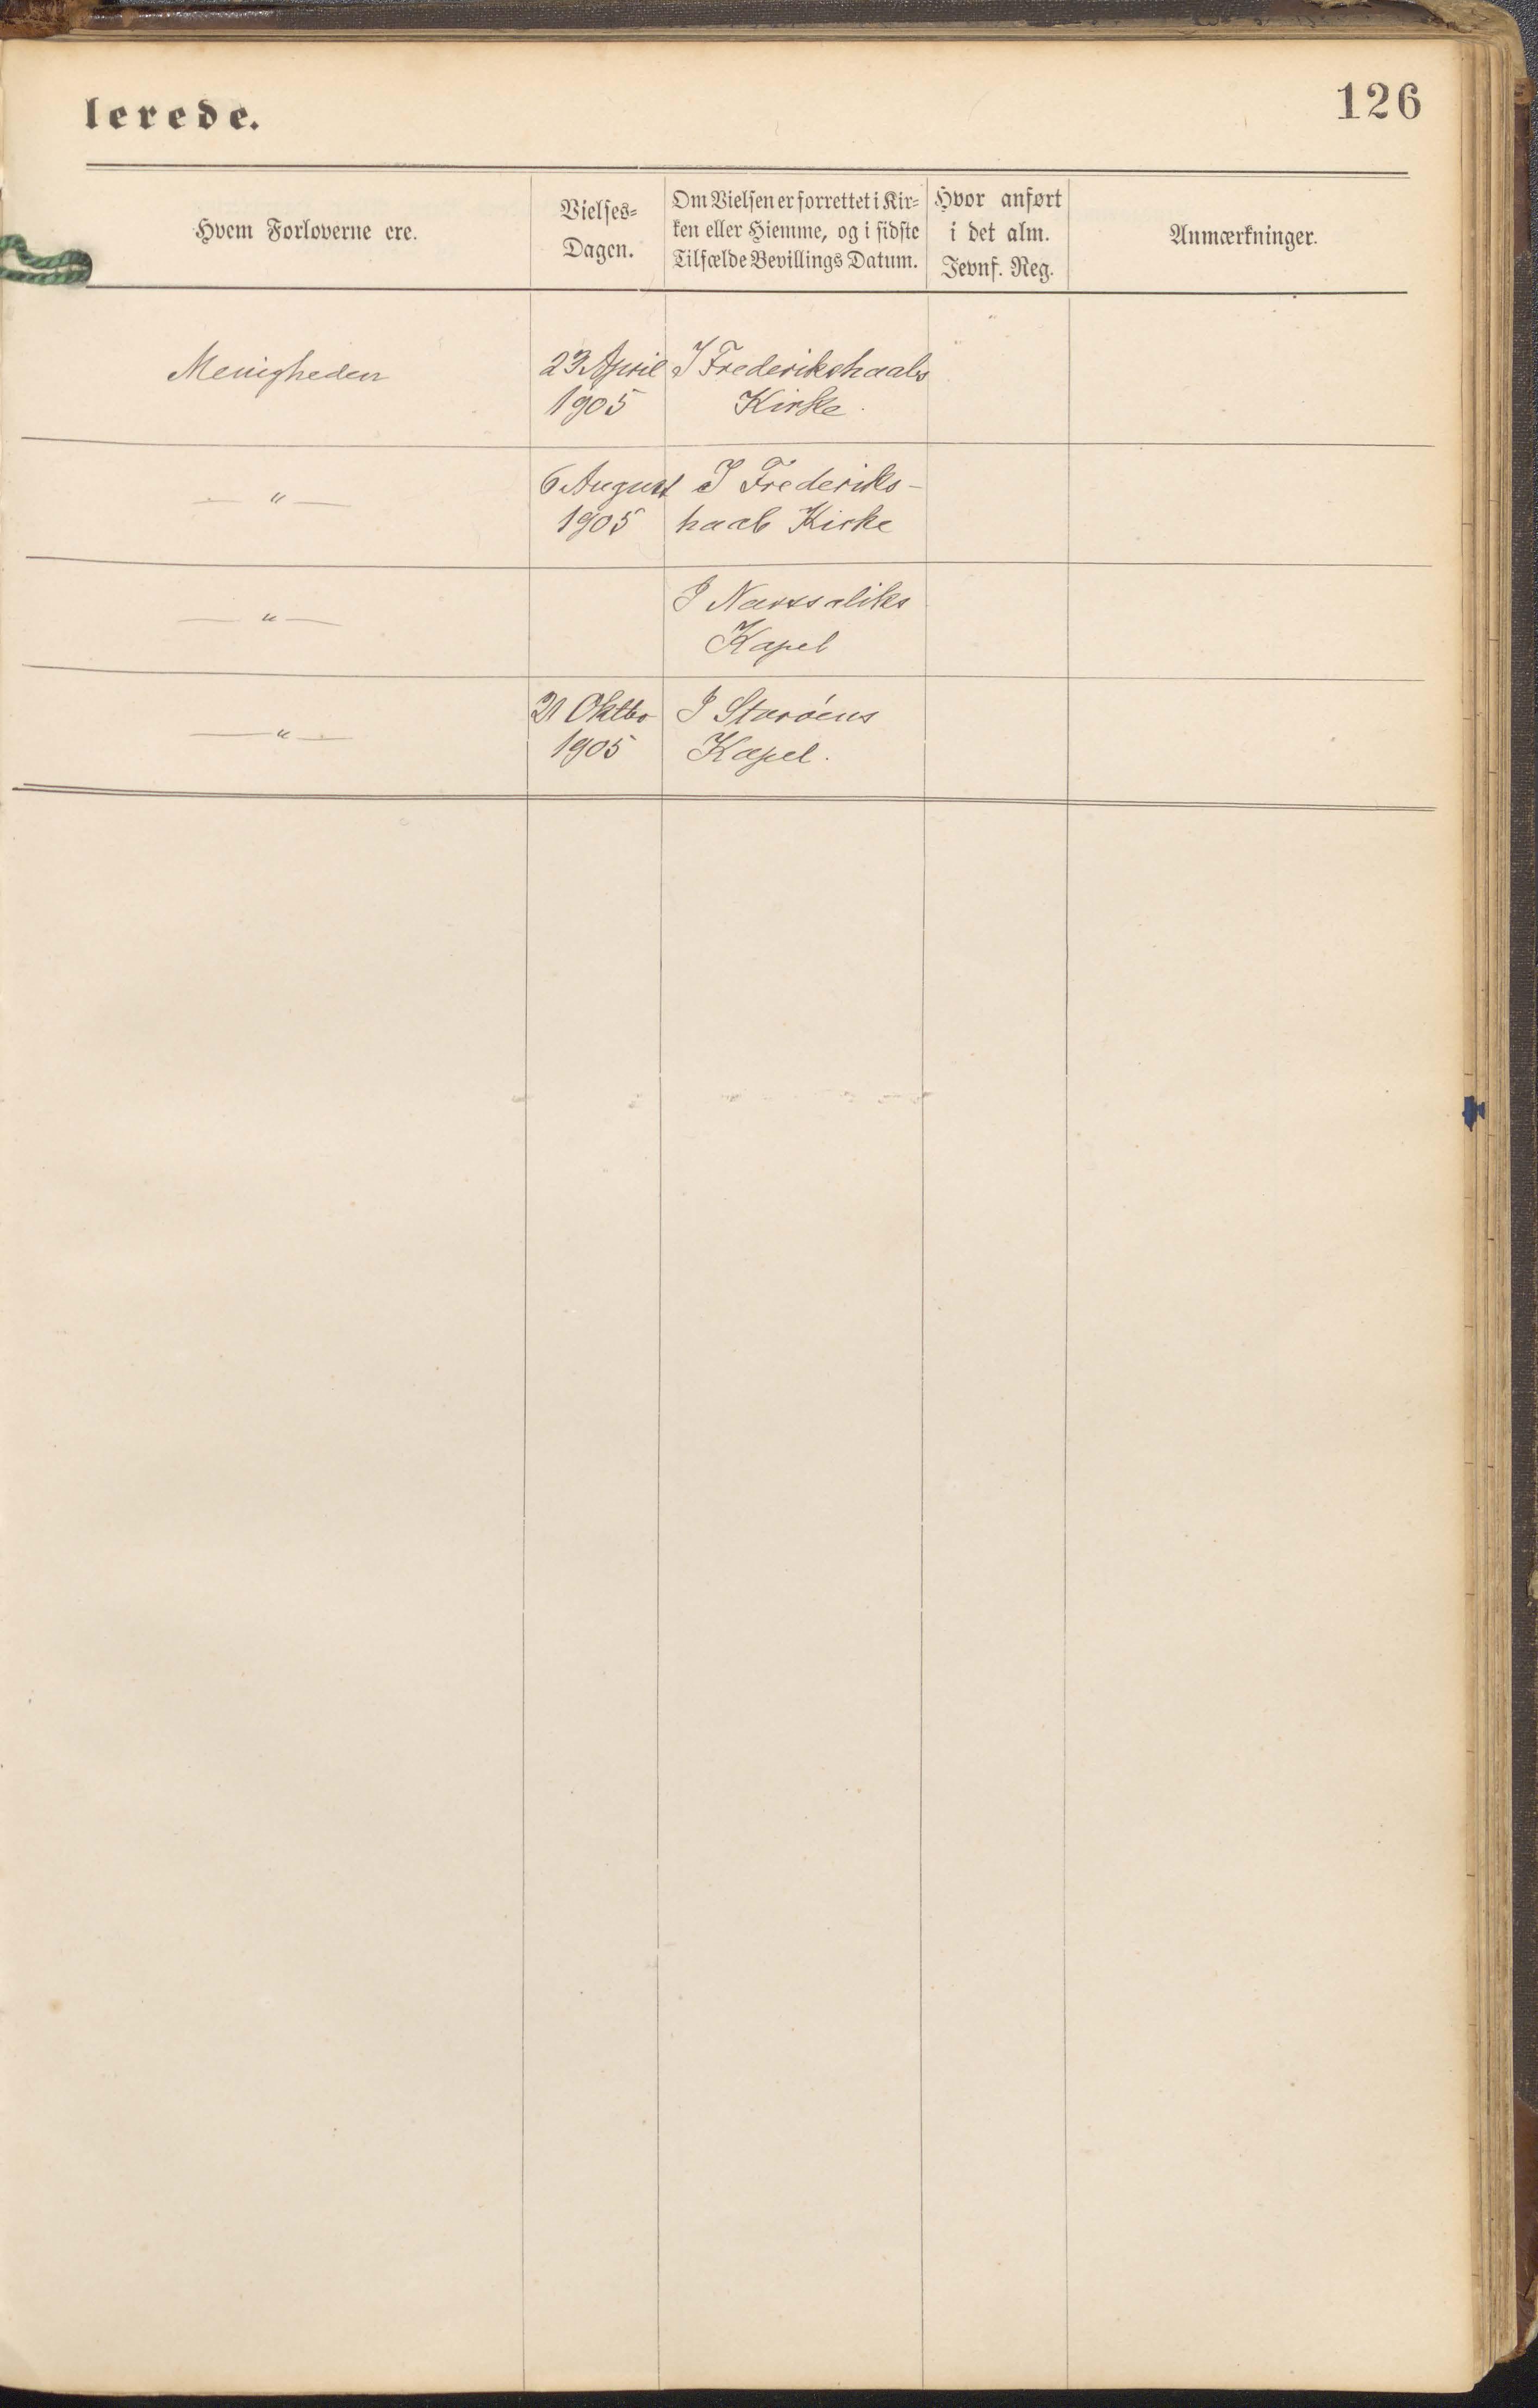 lerede.
126
Hvem Forloverne ere.
Vielses-
Dagen.
Om Vielsen er forrettet i Kir-
ken eller Hiemme, og i sidste
Tilfælde Bevillings Datum.
Hvor anført
i det alm.
Jevnf. Reg.
Anmærkninger.
Menigheden
23 April
1905
I Frederikshaabs
Kirke.
— " —
6 August
1905
I Frederiks-
haab Kirke
— " —
I Narssaliks
Kapel
— " —
21 Oktbr
1905
I Storöens
Kapel.